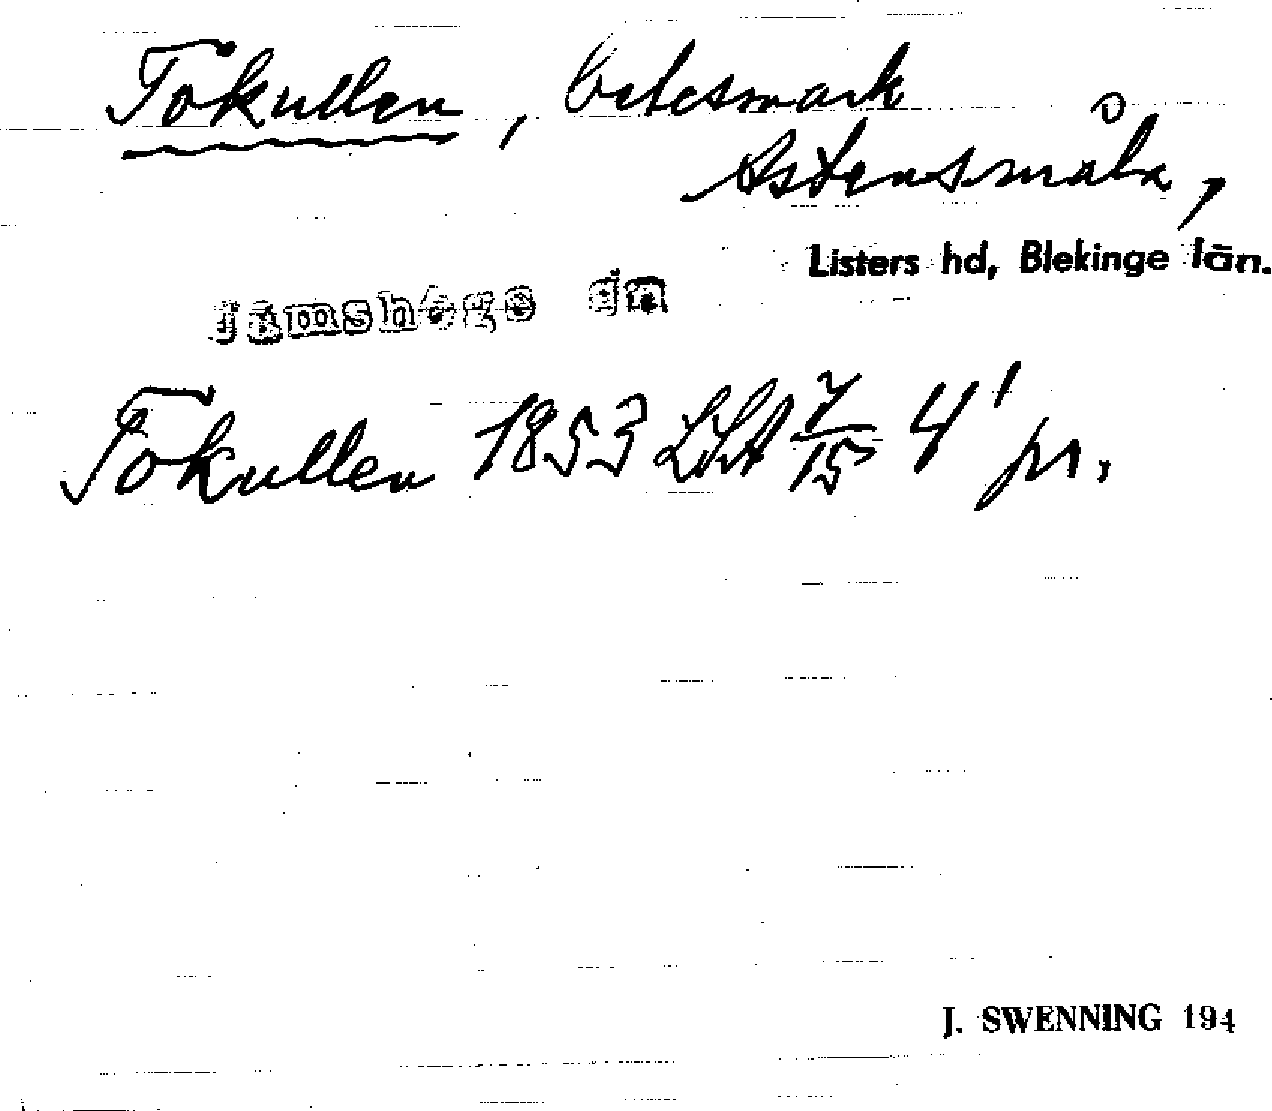 Tokullen, betesmark
Åstensmåla,
Listers hd, Blekinge län.
Jämshögs sn
Tokullen 1853 LSA 7/15 4' pr.
J. SWENNING 194